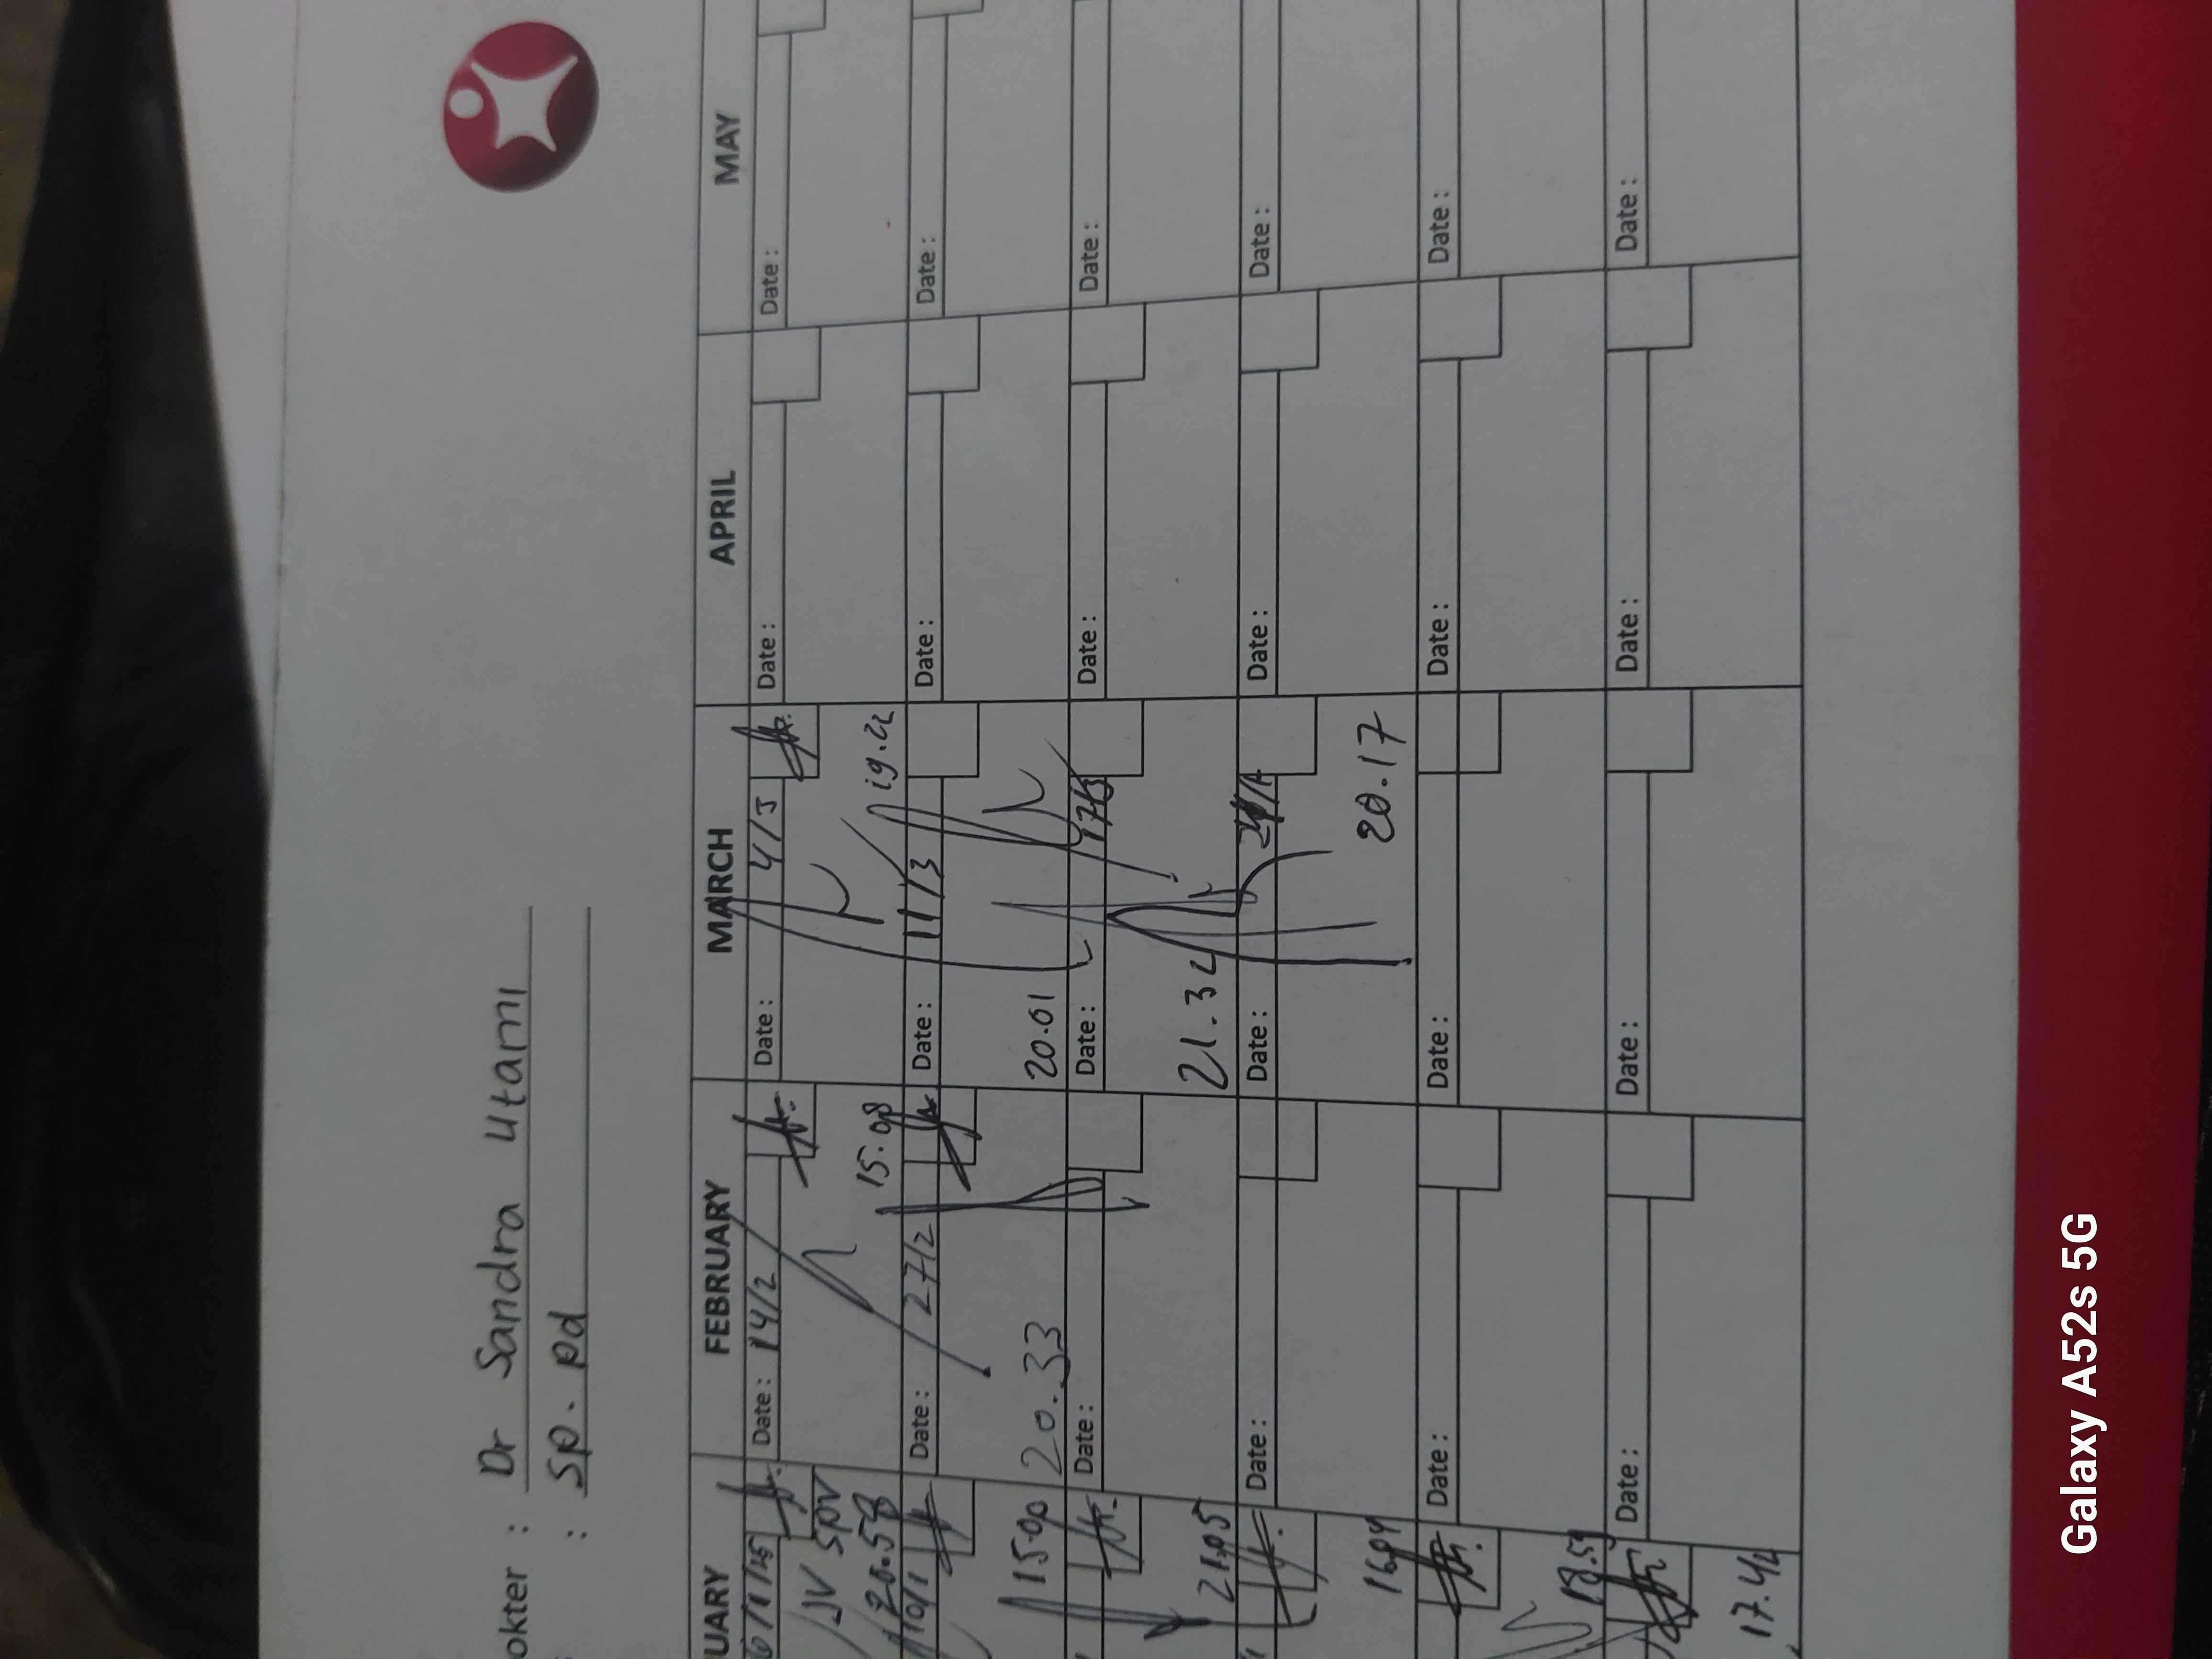 okter : Dr Sandra Utami
: Sp. Pd
UARY FEBRUARY MARCH APRIL MAY
6/1/25 Date : 14/2 Date : 4/3 Date : Date :
JV SPV
20.58 15.08 19.22
10/1 Date : 27/2 Date : 11/3 Date : Date :
15.00 20.33 20.01
Date : Date : 17/3 Date : Date :
21.05 21.32
Date : Date : Date : Date :
16.04 20.17
Date : Date : Date : Date :
18.51
Date : Date : Date : Date :
17.42
Galaxy A52s 5G